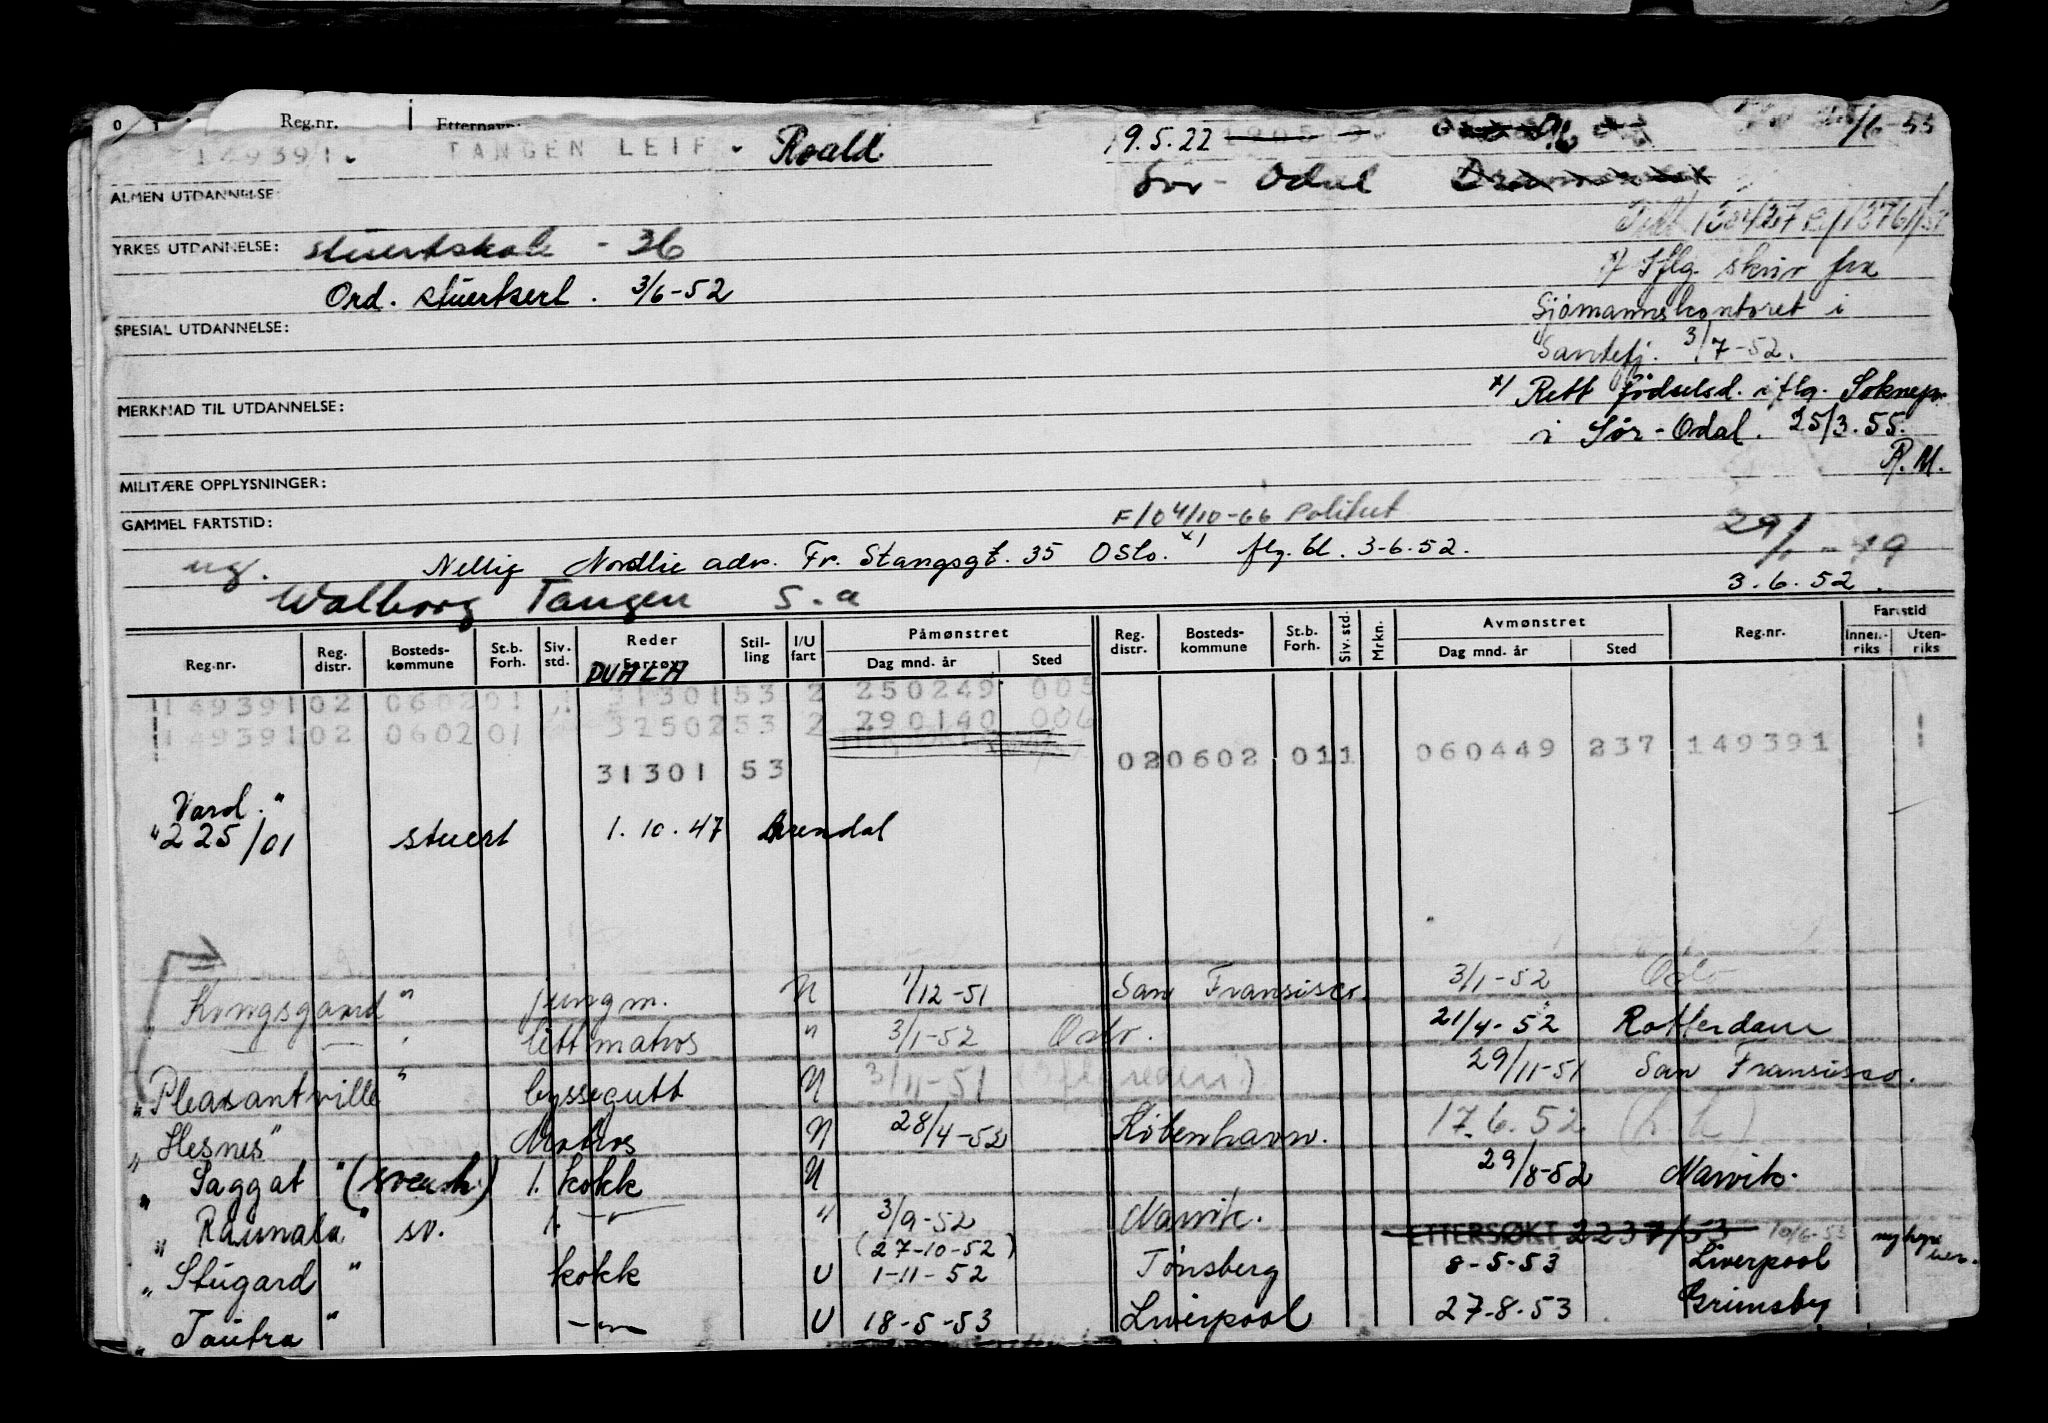 Reg.nr. Etternavn:
149391. TANGEN LEIF. Roald 19.5.22 /6-53
Sør-Odal
ALMEN UTDANNELSE:
YRKES UTDANNELSE: stuertskole - 36
Ord. stuertsert. 3/6-52
x/ Iflg. skriv fra
Sjømannskontoret i
Sandefj. 3/7-52.
SPESIAL UTDANNELSE:
x/ Rett fødselsd. iflg. Soknepr.
i Sør-Odal. 25/3.55.
R.M.
MERKNAD TIL UTDANNELSE:
MILITÆRE OPPLYSNINGER:
GAMMEL FARTSTID: F/0 4/10-66 Politiet
ug. Nellig Nordlie adr. Fr. Stangsgt. 35 Oslo. x/ flg. bl. 3-6.52. 29/ -49
Walborg Tangen S.a 3.6.52.
Reg.nr. Reg. distr. Bosteds-kommune St.b. Forh. Siv. std. Reder Fartøy Stil-ling I/U fart Påmønstret Dag mnd. år Sted Reg. distr. Bosteds-kommune St.b. Forh. Siv. std. Mrkn. Avmønstret Dag mnd. år Sted Reg.nr. Fartstid Innen-riks Uten-riks
DUALA
149391 02 0602 01 31301 53 2 250249 005
149391 02 0602 01 32502 53 2 290140 006
020602 011 060449 237 149391
31301 53
Vard."
"225/01 stuert 1.10.47 Arendal
Kongsgaard" jungm. U 1/12-51 San Fransisco. 3/1-52 Oslo
— — " lett matros " 3/1-52 Oslo. 21/4-52 Rotterdam
"Pleasantville" byssegutt U 3/11-51 (iflg rederi.) 29/11-51 San Fransisco.
"Hesnes" Matros U 28/4-52 København. 17.6.52
"Saggat" (svensk) 1. kokk U 29/8-52 Narvik.
"Raunala" sv. 1. —"— " 3/9-52 Narvik. ETTERSØKT 2237/53 10/6-53
(27-10-52)
"Stugard" kokk U 1-11-52 Tønsberg 8-5-53 Liverpool
"Tautra" —"— U 18-5-53 Liverpool 27-8-53 Grimsby